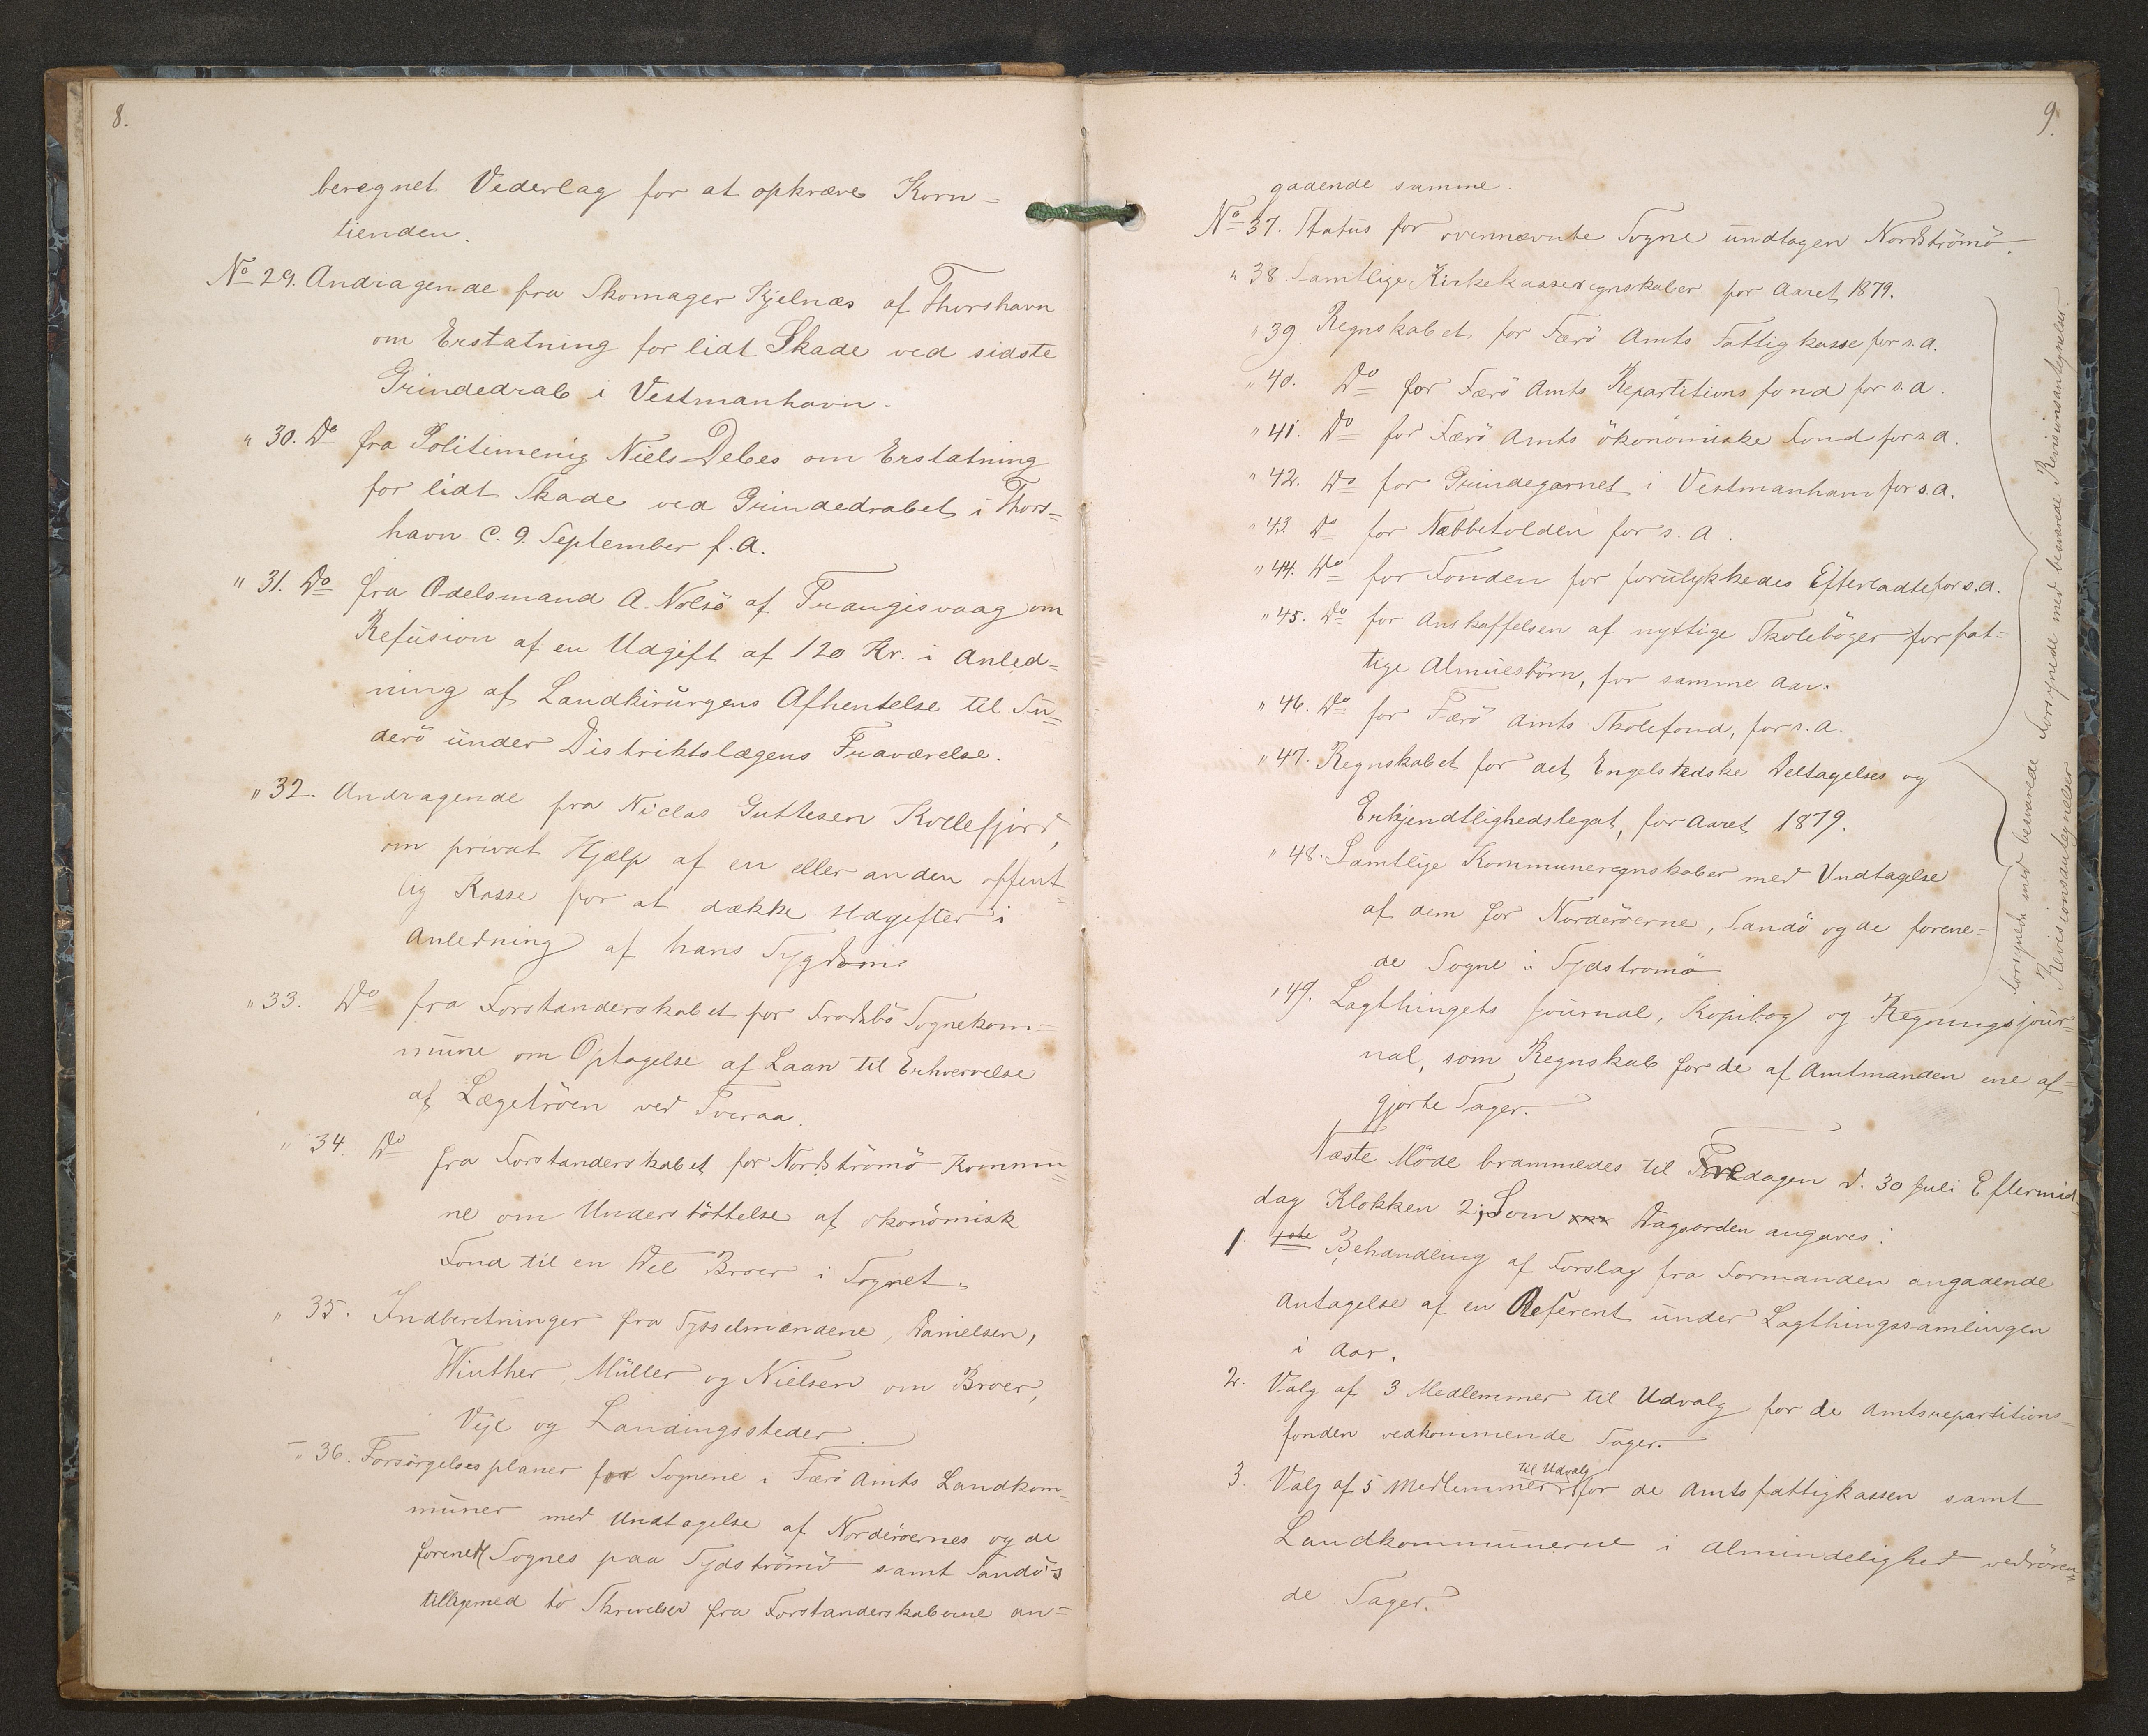 8.
beregnet Vederlag for at opkræve Korn=
tienden.
No 29. Andragende fra Skomager Kjelnæs af Thorshavn
om Erstatning for lidt Skade ved sidste
Grindedrab i Vestmanhavn.
" 30. Do fra Politimenig Niels Debes om Erstatning
for lidt Skade ved Grindedrabet i Thors=
havn d. 9. September f. A.
" 31. Do fra Odelsmand A. Nolsö af Trangisvaag om
Refusion af en Udgift af 120 Kr. i Anled=
ning af Landkirurgens Afhentelse til Su=
derö under Distriktslægens Fraværelse.
" 32. Andragende fra Niclas Guttesen Kollefjord,
om privat Hjælp af en eller anden offent=
lig Kasse for at dække Udgifter i
Anledning af hans Sygdom.
" 33. Do fra Forstanderskabet for Frodebö Sognekom=
mune om Optagelse af Laan til Erhvervelse
af Lægetröen ved Tveraa.
" 34. Do fra Forstanderskabet for Nordströmö Kommu=
ne om Understöttelse af ökonomisk
Fond til en Del Broer i Sognet.
" 35. Indberetninger fra Sysselmændene, Danielsen,
Winther, Müller og Nielsen om Broer,
Veje og Landingssteder.
" 36. Forsörgelsesplaner for Sognene i Færö Amts Landkom=
muner med Undtagelse af Norderöernes og de
forenede Sognes paa Sydströmö samt Sandö's
tilligemed to Skrivelser fra Forstanderskaberne an=
9.
gaaende samme.
No 37. Status for ovennævnte Sogne undtagen Nordströmö.
" 38. Samtlige Kirkekasseregnskaber for Aaret 1879.
" 39. Regnskabet for Færö Amts Fattigkasse for s. A.
" 40. Do for Færö Amts Repartitionsfond for s. A.
" 41. Do for Færö Amts ökonomiske Fond for s. A.
" 42. Do for Grindegarnet i Vestmanhavn for s. A.
" 43. Do for Næbbetolden for s. A.
" 44. Do for Fonden for forulykkedes Efterladte for s. A.
" 45. Do for Anskaffelsen af nyttige Skoleböger for fat=
tige Almuesbörn, for samme Aar.
" 46. Do for Færö Amts Skolefond, for s. A.
" 47. Regnskabet for det Engelstedske Deltagelses og
Erkjendtlighedslegat, for Aaret 1879.
" 48. Samtlige Kommuneregnskaber med Undtagelse
af dem for Norderöerne, Sandö og de forene=
de Sogne i Sydstromö
" 49. Lagthingets Journal, Kopibog og Regningsjour=
nal, som Regnskab for de af Amtmanden ene af=
gjorte Sager.
forsynede med besvarede Revisionsantegnelser.
forsynede med besvarede
Revisionsantegnelser
Næste Möde brammedes til Fredagen d. 30 Juli Eftermid=
dag Klokken 2; Som Dagsorden angaves:
1. 1ste Behandling af Forslag fra Formanden angaaende
Antagelse af en Referent under Lagthingssamlingen
i Aar.
2. Valg af 3 Medlemmer til Udvalg for de Amtsrepartitions=
fonden vedkommende Sager.
til Udvalg
3. Valg af 5 Medlemmer for de Amtsfattigkassen samt
Landkommunerne i Almindelighed vedrören=
de Sager.